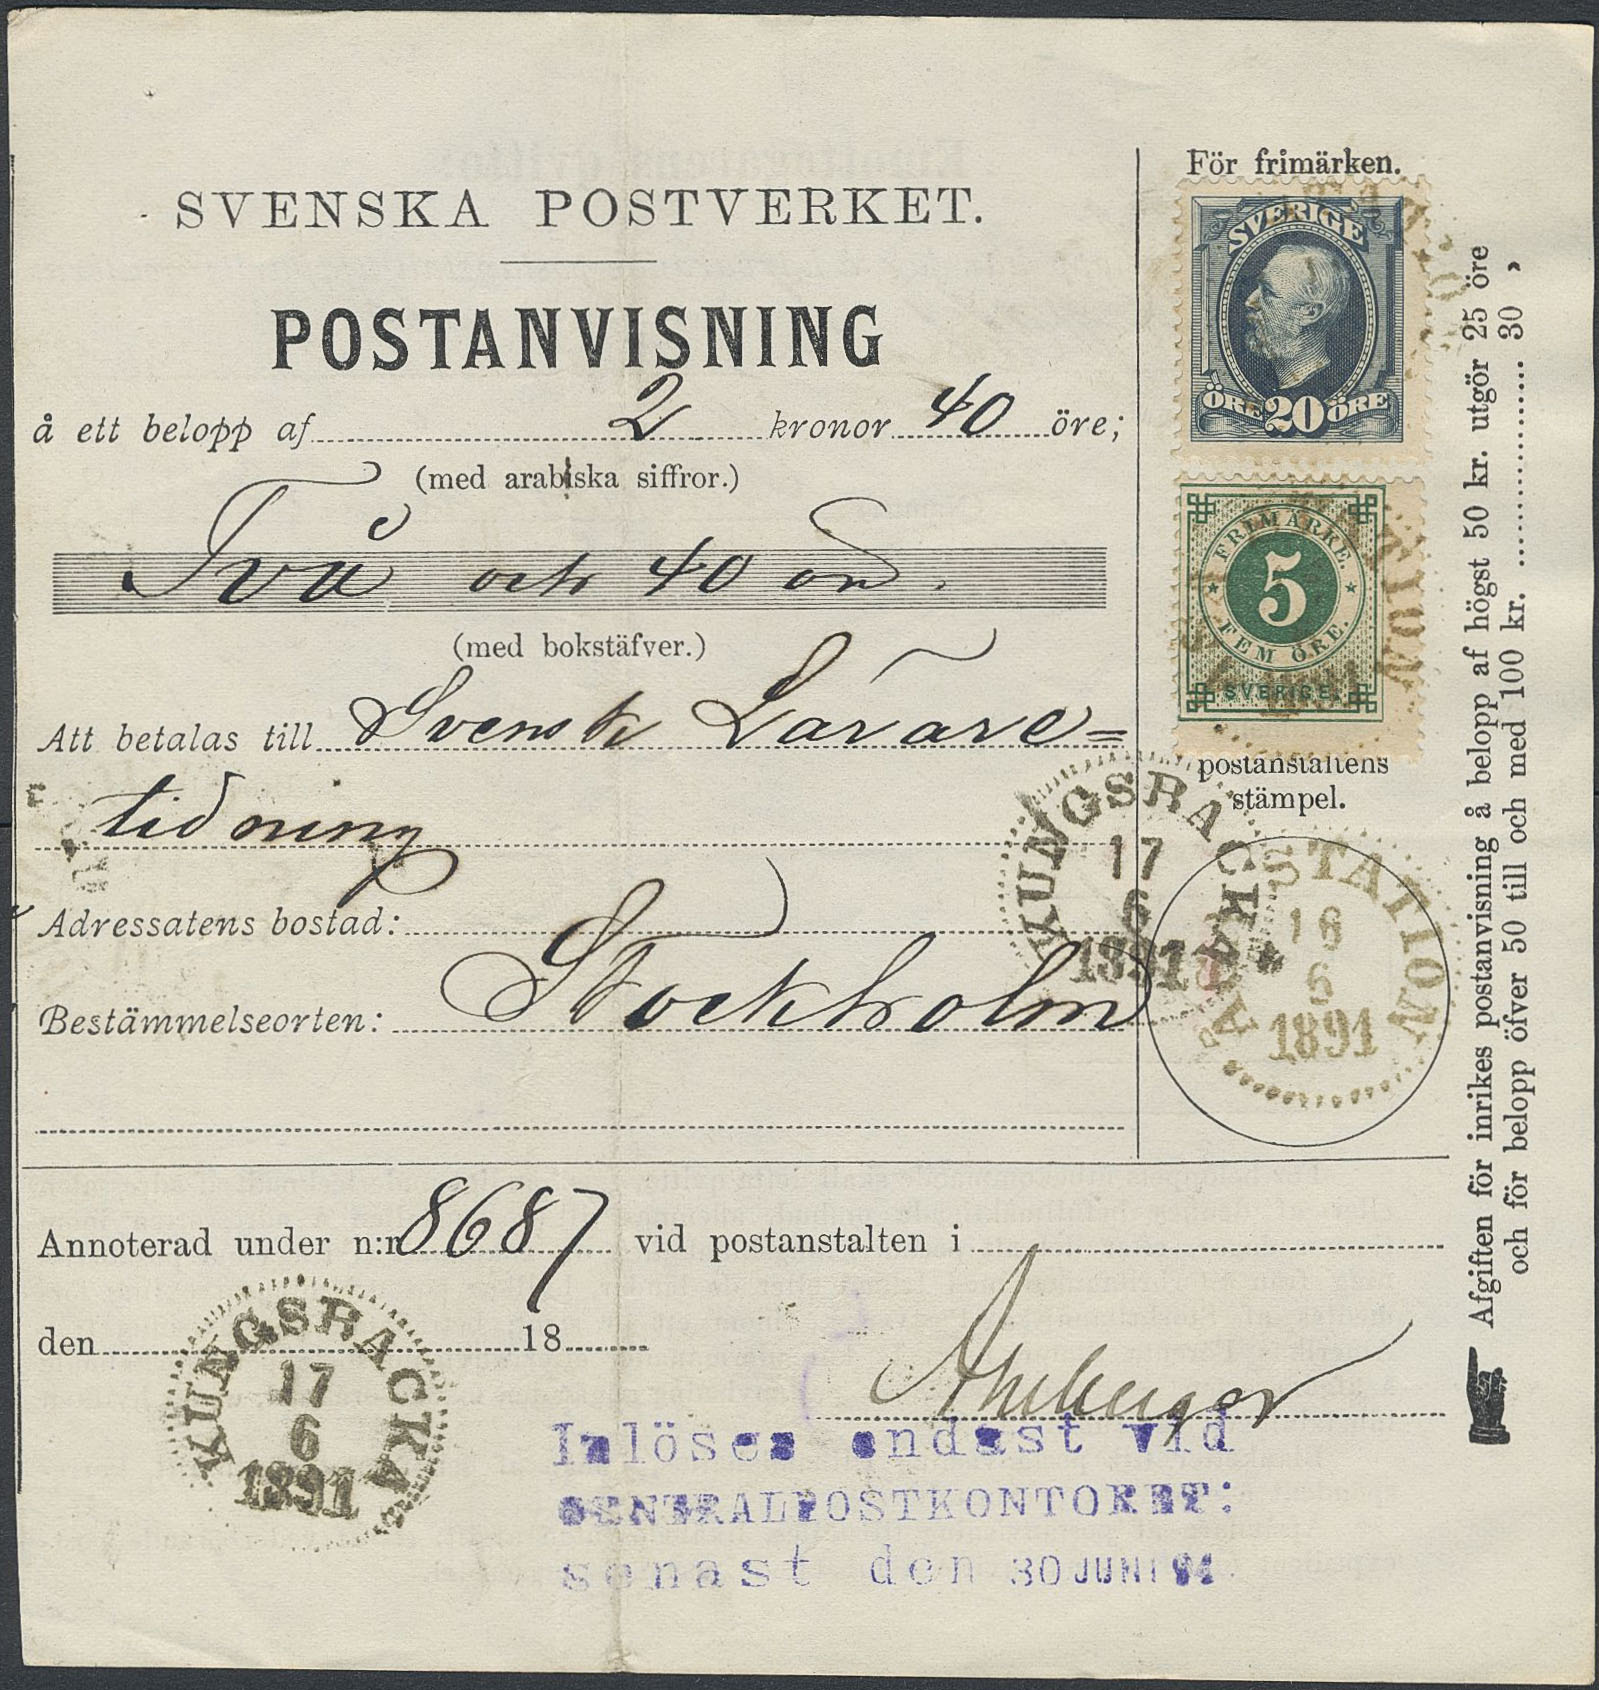 SVENSKA POSTVERKET.
POSTANVISNING
å ett belopp af 2 kronor 40 öre;
(med arabiska siffror.)
Två och 40 öre.
(med bokstäfver.)
Att betalas till Svensk Lärare=
tidning
Adressatens bostad:
Bestämmelseorten: Stockholm
För frimärken.
SVERIGE
ÖRE 20 ÖRE
FRIMÄRKE.
5
FEM ÖRE.
SVERIGE.
postanstaltens
stämpel.
KUNGSBACKA
17
6
1891
STATION
16
6
1891
Afgiften för inrikes postanvisning å belopp af högst 50 kr. utgör 25 öre
och för belopp öfver 50 till och med 100 kr. 30 »
Annoterad under n:r 8687 vid postanstalten i
den 18
KUNGSBACKA
17
6
1891
Inlöses endast vid
CENTRALPOSTKONTORET:
senast den 30 JUNI 91